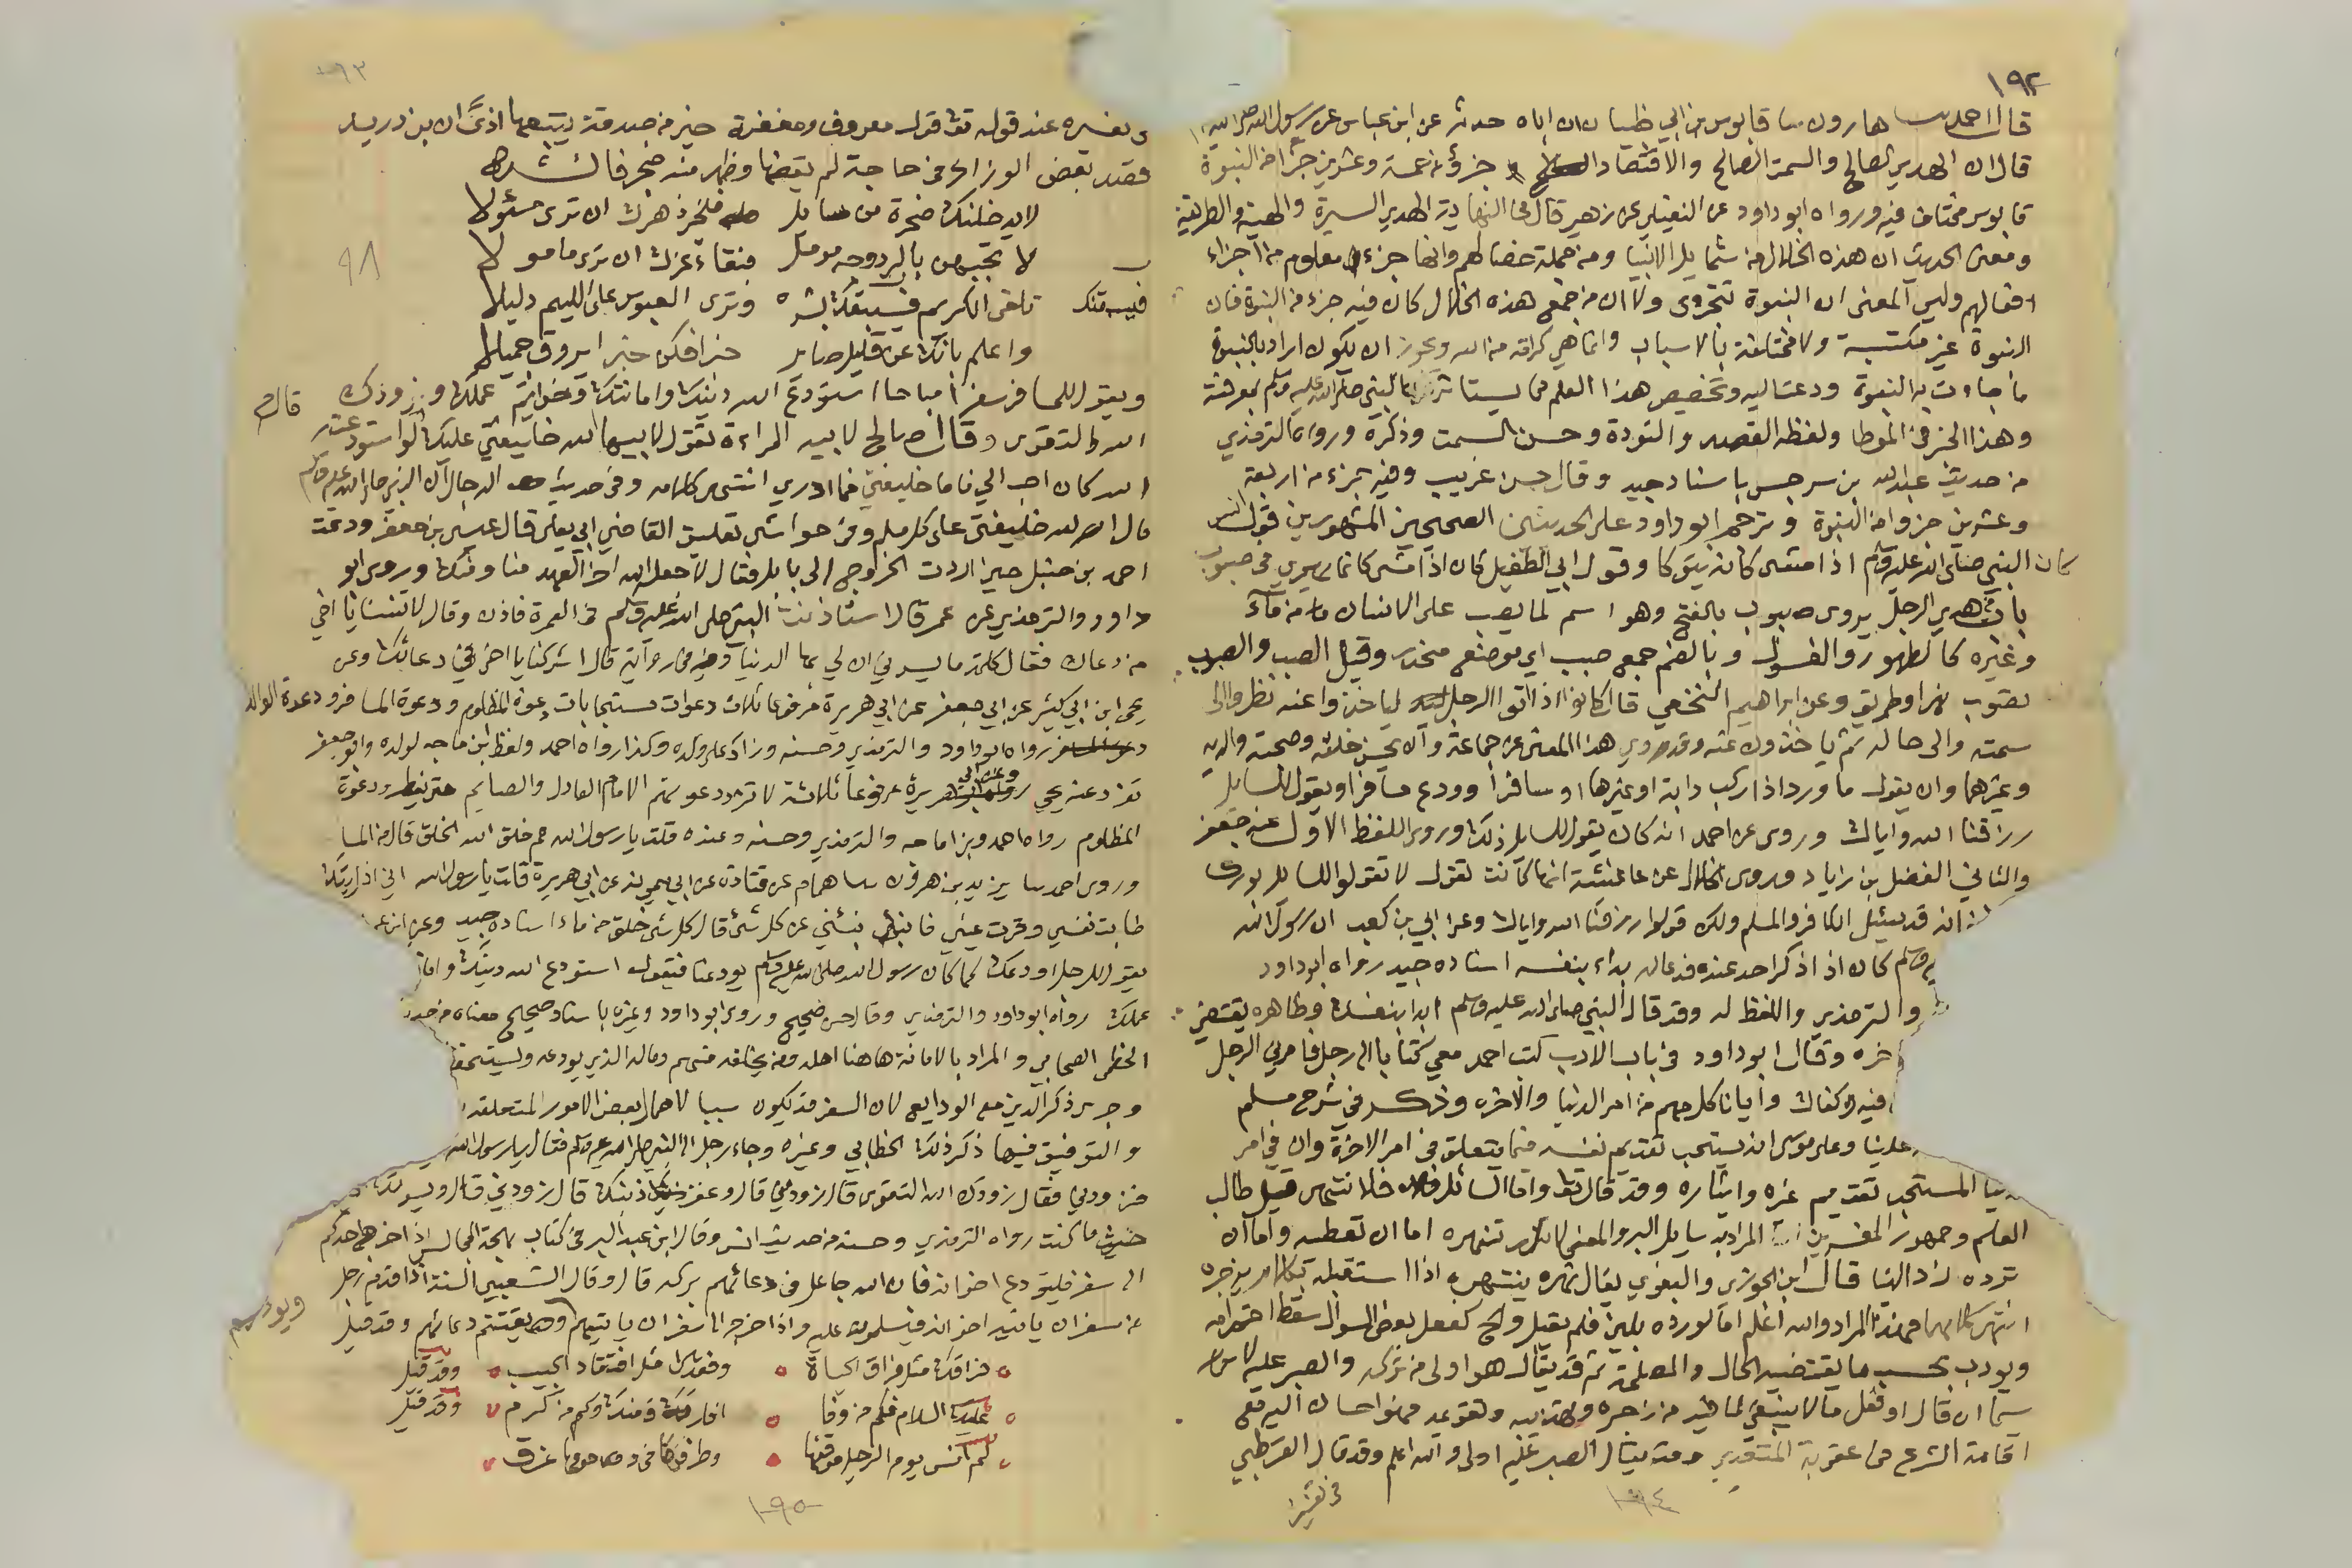 ١٩٢
قال احمد ثنا هارون ثنا قابوس بن ابي ظبيان ان اباه حدثه عن ابن عباس عن رسول الله صلى الله
قال ان الهدي الصالح والسمت الصالح والاقتصاد جزؤ من خمسة وعشرين جزأ من النبوة
قابوس مختلف فيه ورواه ابو داود عن النفيلي عن زهير قال في النهاية الهدي السيرة والهيئة والطريقة
ومعنى الحديث ان هذه الخلال من شمايل الانبيا ومن جملة خصالهم وانها جزء معلوم من اجزاء
افعالهم وليس المعنى ان النبوة تتجزى ولا ان من جمع هذه الخلال كان فيه جزء من النبوة فان
النبوة غير مكتسبة ولا مجتلبة بالاسباب وانما هي كرامة من الله ويجوز ان يكون اراد بالنبوة
ما جاءت به النبوة ودعت اليه وتخصيص هذا العلم مما يستاثر النبي صلى الله عليه وسلم بمعرفته
وهذا الخبر في الموطا ولفظه القصد والتودة وحسن السمت وذكره ورواه الترمذي
من حديث عبدالله بن سرجس باسناد جيد وقال حسن غريب وفيه جزء من اربعة
وعشرين جزوا من النبوة وترجم ابو داود على الحديثين الصحيحين المشهورين قول انس
كان النبي صلى الله عليه وسلم اذا مشى كانه يتوكا وقول ابي الطفيل كان اذا مشى كانما يهوي في صبوب
باب هدي الرجل يروى صبوب بالفتح وهو اسم لما يصب على الانسان من ماء
وغيره كالطهور والغسول وبالضم جمع صبب اي موضع منحدر وقيل الصبب والصبوب
تصوب نهر او طريق وعن ابراهيم النخعي قال كانوا اذا اتوا الرجل لياخذوا عنه نظروا الى
سمته والى حاله ثم ياخذون عنه وقد روي هذا المعنى عن جماعة وان يحسن خلقه وصحبة والديه
وغيرهما وان يقول ما ورد اذا ركب دابة او غيرها او سافرا وودع مسافرا ويقول للسايل
رزقنا الله واياك وروى عن احمد انه كان يقول للسايل ذلك وروى اللفظ الاول عنه جعفر
والثاني الفضل بن زياد وروى الخلال عن عائشة انها كانت تقول لا تقولوا للسايل بورك
انه قد يسئل الكافر والمسلم ولكن قولوا رزقنا الله واياك وعن ابي بن كعب ان رسول الله
وسلم كان اذا ذكر احد عنده فدعا له بداء بنفسه اسناده جيد رواه ابو داود
والترمذي واللفظ له وقد قال النبي صلى الله عليه وسلم ابدا بنفسك وظاهره يقتضي
خره وقال ابو داود في باب الادب كتب احمد معي كتابا الى رجل فامرني الرجل
فيه كفاك وايانا كل مهم من امر الدنيا والاخره وذكر في شرح مسلم
علينا وعلى موسى انه يستحب تقديم نفسه فيما يتعلق في امر الاخرة وان في امر
نيا المستحب تقديم غيره وايثاره وقد قال تعالى واما السائل فلا تنهر قيل طالب
العلم وجمهور المفسرين ان المراد به سايل البر والمعنى لا تنهره اما ان تعطيه واما ان
ترده ردا لينا قال ابن الجوزي والبغوي يقال نهره ينتهره اذا استقبله بكلام يزجره
انتهى كلامهما وهذا المراد والله اعلم اما لو رده بلين فلم يقبل والح كفعل بعض السوال سقط احترامه
ويودب بحسب ما يقتضيه الحال والمصلحة ثم قد يقال هو اولى من تركه والصبر عليه لا
سيما ان قال او فعل مالا ينبغي لما فيه من زجره وتهذيبه وتقويمه فهو احسان اليه مع
اقامة الشرع في عقوبة المتعدي وقد يقال الصبر عليه اولى والله اعلم وقد قال القرطبي
في تفسير
١٩٤
١٩٣
تفسيره عند قوله تعالى قول معروف ومغفرة خير من صدقة يتبعها اذى ان ابن دريد
قصد بعض الوزراء في حاجة لم يقضها وظهر منه ضجر فانشده
لا يدخلنك ضجرة من سايل فلخير دهرك ان ترى مسئولا
لا تجبهن بالرد وجه مومل فبقاء عزك ان ترى مامولا
تلقى الكريم فتستدل ببشره وترى العبوس على اللئيم دليلا
واعلم بانك عن قليل صاير خبرا فكن خبرا يروق جميلا
٩٨
ويقول للمسافر سفرا مباحا استودع الله دينك وامانتك وخواتيم عملك وزودك
الله التقوى وقال صالح لابيه المراءة تقول لابيها الله خليفتي عليك قال لو استودعته
الله كان احب الي فاما خليفتي فما ادري انتهى كلامه وفي حديث الدجال ان النبي صلى الله عليه وسلم
قال الله خليفتي على كل مسلم وفي حواشي تعليق القاضي ابي يعلى قال عيسى بن جعفر ودعت
احمد بن حنبل حين اردت الخروج الى بابل فقال لا جعله الله اخر العهد منا ومنك وروى ابو
داود والترمذي عن عمر قال استاذنت النبي صلى الله عليه وسلم في العمرة فاذن وقال لا تنسنا يا اخي
من دعائك فقال كلمة ما يسرني ان لي بها الدنيا وفي رواية قال اشركنا يا اخي في دعائك وعن
يحيى ابن ابي كثير عن ابي جعفر عن ابي هريرة مرفوعا ثلاث دعوات مستجابات دعوة المظلوم ودعوة المسافر ودعوة الوالد
رواه ابو داود والترمذي وحسنه وزاد على ولده وكذا رواه احمد ولفظ ابن ماجه لولده وابو جعفر
تفرد عنه يحيى وعن ابي هريرة مرفوعا ثلاثة لا ترد دعوتهم الامام العادل والصايم حتى يفطر ودعوة
المظلوم رواه احمد وابن ماجه والترمذي وحسنه وعنده قلت يا رسول الله مم خلق الله الخلق قال من الما
وروى احمد ثنا يزيد بن هرون ثنا همام عن قتادة عن ابي ميمونة عن ابي هريرة قلت يا رسول الله اني اذا رايتك
طابت نفسي وقرت عيني فانبئني عن كل شئ قال كل شئ خلق من ماء اسناده جيد وعن ابن عمر
يقول للرجل اودعك كما كان رسول الله صلى الله عليه وسلم يودعنا فيقول استودع الله دينك وامانتك
عملك رواه ابو داود والترمذي وقال حسن صحيح وروى ابو داود وغيره باسناد صحيح معناه من حديث
الخطمي الصحابي والمراد بالامانة هاهنا اهله ومن يخلفه منهم وماله الذي يودعه ويستحفظ
وجرى ذكر الدين مع الودايع لان السفر قد يكون سببا لاهمال بعض الامور المتعلقة
والتوفيق فيها ذكر ذلك الخطابي وغيره وجاء رجل الى النبي صلى الله عليه وسلم فقال يا رسول الله
فزودني فقال زودك الله التقوى قال زودني قال وغفر ذنبك قال زودني قال ويسر لك
حيث ما كنت رواه الترمذي وحسنه من حديث انس وقال ابن عبد البر في كتاب بهجة المجالس اذا خرج احدكم
الى سفر فليودع اخوانه فان الله جاعل في دعائهم بركه قال وقال الشعبي السنة اذا قدم رجل
من سفر ان ياتيه اخوانه فيسلمون عليه واذا خرج الى سفر ان ياتيهم ويغتنم دعائهم وقد قيل
فراقك مثل فراق الحياة وفقدك مثل افتقاد الحبيب وقد قيل
عليك السلام فكم من وفا افارق منك وكم من كرم وقد قيل
لم انس يوم الرحيل موقفها وطرفها في دموعها غرق
١٩٥